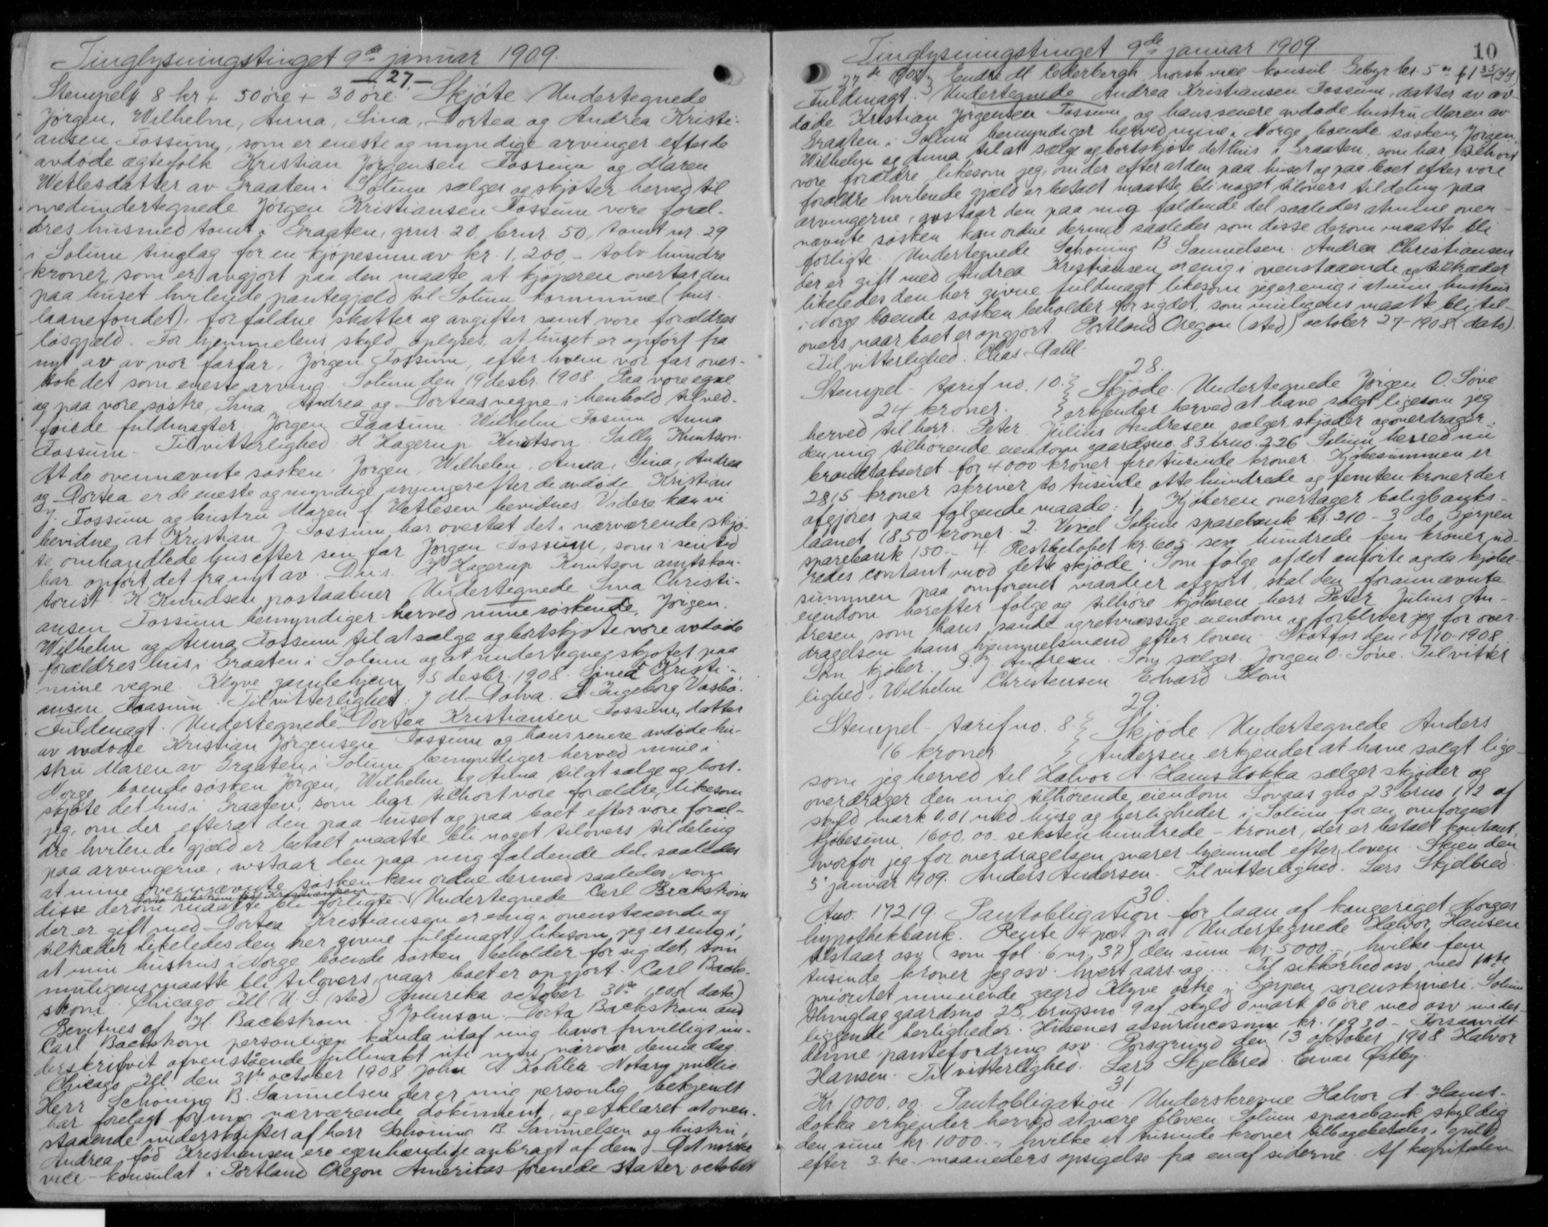 Tinglysningstinget 9de januar 1909.
27.
Stempelt 8 kr + 50 øre + 30 øre Skjøte Undertegnede
Jørgen, Wilhelm, Anna, Sina, Dortea og Andrea Kristi-
ansen Fossum, som er eneste og myndige arvinger efter de
avdøde ægtefolk Kristian Jørgensen Fossum og Maren
Wetlesdatter av Graaten i Solum sælger og skjøter herved til
medundertegnede Jørgen Kristiansen Fossum vore foræl-
dres hus med tomt i Graaten, gnr 20, bnr 50, tomt nr 29
i Solum tinglag for en kjøpesum av kr. 1,200 - tolv hundre
kroner, som er avgjort paa den maate at kjøperen overtar den
paa huset hvilende pantegjæld til Solum kommune (hus-
laanefondet), forfaldne skatter og avgifter samt vore forældres
løsgjæld. For hjemmelens skyld oplyses, at huset er opført fra
nyt av av vor farfar, Jørgen Fossum, efter hvem vor far over-
tok det som eneste arving. Solum den 19 desbr. 1908. Paa vore egne
og paa vore søstre, Sina Andrea og Dorteas vegne i henhold til ved-
føiede fuldmagter Jørgen Faasum. Wilhelm Fosum Anna
Fossum. Til vitterlighed H Hagerup Knutson Sally Knutson.
At de ovennævnte søsken, Jørgen, Wilhelm, Anna, Sina, Andrea
og Dortea er de eneste og myndige arvinger efter de avdøde Kristian
J. Fossum og hustru Maren f. Wetlesen bevidnes Videre kan vi
bevidne, at Kristian J Fossum har overtat det i nærværende skjø-
te omhandlede hus efter sin far Jørgen Fossum, som i sin tid
har opført det fra nyt av. D.u.s. H Hagerup Knutson amtskon-
torist K Knudsen postaabner Undertegnede Sina Christi-
ansen Fossum bemyndiger herved mine søskende Jørgen.
Wilhelm og Anna Fossum til at sælge og bortskjøte vore avdøde
forældres hus i Graaten i Solum og at undertegne skjøtet paa
mine vegne. Klyve gamlehjem 95 desbr. 1908. Sina Kristi-
ansen Faasum. Til vitterlighet J M Ingeborg
Fuldmagt. Undertegnede Dortea Kristiansen Fossum, datter
av avdøde Kristian Jørgensen Fossum og hans senere avdøde hu-
stru Maren av Graaten i Solum bemyndiger herved mine i
Norge boende søsken Jørgen, Wilhelm og Anna til at sælge og bort-
skjøte det hus i Graaten, som har tilhørt vore forældre, likesom
jeg, om der efterat den paa huset og paa boet efter vore foræl-
dre hvilende gjæld er betalt maatte bli noget tilovers til deling
paa arvingerne, avstaar den paa mig faldende del saaledes
at mine ovennævnte søsken kan ordne dermed saaledes, som
disse derom maatte bli forligte. Undertegnede Carl Backstrom
der er gift med Dortea Kristiansen er enig i ovenstaaende og
tiltræder likeledes den her givne fuldmagt likesom jeg er enig i
at min hustrus i Norge boende søsken beholder for sig det, som
muligens maatte bli tilovers naar boet er opgjort. Carl Back-
strom. Chicago Ill U. S. sted Amerika october 30te 1908 (dato)
Bevitnes af H. Backstrom. J Johnson Dorta Backstrom and
Carl Backstrom personligen kända utaf mig havor frivilligt un-
derskrifvit ofvenstående fullmakt uti min närvar denna dag
Chicago Ill. den 31te october 1908 John A Kohler Notary public
Herr Schoning B. Samuelsen der er mig personlig bekjendt
har forelagt for mig nærværende dokument, og erklæret at oven-
staaende underskrifter af herr Schoning B Samuelsen og hustru,
Andrea, fød Kristiansen, ere egenhændige anbragt af dem. Det norske
vice-konsulat i Portland Oregon Amerikas forenede stater october
Tinglysningstinget 9de januar 1909
10
27de 1908 Endre M Cederbergh norsk vice konsul Gebyr kr. 5
Fuldmagt. Undertegnede Andrea Kristiansen Fossum, datter av av-
døde Kristian Jørgensen Fossum og hans senere avdøde hustru Maren av
Graaten i Solum bemyndiger herved mine i Norge boende søsken, Jørgen,
Wilhelm og Anna til at sælge og bortskjøte det hus i Graaten, som har tilhørt
vore forældre, likesom jeg, om der efterat den paa huset og paa boet efter vore
forældre hvilende gjæld er betalt maatte bli noget tilovers til deling paa
arvingerne, avstaar den paa mig faldende del saaledes at mine oven-
nævnte søsken kan ordne dermed saaledes som disse derom maatte bli
forligte. Undertegnede Schoning B Samuelsen. Andrea Christiansen
der er gift med Andrea Kristiansen er enig i ovenstaaende og tiltræder
likeledes den her givne fuldmagt likesom jeg er enig i at min hustrus
i Norge boende søsken beholder for sig det som muligens maatte bli til-
overs naar boet er opgjort. Portland Oregon (sted) october 27-1908 (dato).
Til vitterlighed. Chas. Dahl
28.
Stempel - tarif no. 10. Skjøde. Undertegnede Jørgen O. Søve
24 kroner. erkjender herved at have solgt ligesom jeg
herved til herr. Peter Julius Andresen sælger skjøder og overdrager
den mig tilhørende eiendom gaardsno. 83 brno. 226 Solum herred nu
brandtakseret for 4000 kroner fire tusinde kroner. Kjøbesummen er
2815 kroner skriver to tusinde otte hundrede og femten kroner der
afgjøres paa følgende maade: 1 Kjøberen overtager boligbanks-
laanet 1850 kroner 2 Vexel Solum sparebank kr 210 - 3 do Gjerpen
sparebank 150 - 4 Restbeløbet kr. 605 sex hundrede fem kroner ud-
redes contant mod dette skjøde. Som følge af det anførte og da kjøbe-
summen paa omforenet maade er afgjort, skal den forannævnte
eiendom herefter følge og tilhøre kjøberen herr Peter Julius An-
dresen som hans sande og retmæssige eiendom og forbliver jeg for over-
dragelsen hans hjemmelsmand efter loven. Skotfos den 5/10-1908.
Som kjøber. P. J. Andresen. Som sælger Jørgen O. Søve. Til vitter-
lighed Wilhelm Christensen Edvard Blom
29.
Stempel - tarif no. 8 Skjøde Undertegnede Anders
16 kroner Andersen erkjender at have solgt lige-
som jeg herved til Halvor A. Hamsdokka sælger skjøder og
overdrager den mig tilhørende eiendom Lovaas gno 23 brno 112 af
skyld mark 0.01 med huse og herligheder i Solum for en omforenet
kjøbesum 1600.00 seksten hundrede - kroner, der er betalt kontant,
hvorfor jeg for overdragelsen svarer hjemmel efter loven. Skien den
5 januar 1909. Anders Andersen. Til vitterlighed. Lars Skjelbred
30.
Ano. 17219. Pantobligation for laan af kongeriget Norges
hypothekbank. Rente 4 pct. p a Undertegnede Halvor Hansen
tilstaar osv. (som fol. 6 no. 37) den sum kr. 5000 -, hvilke fem
tusinde kroner jeg osv. hvert aars og ... Til sikkerhed osv. med 1ste
prioritet min eiende gaard Klyve østre i Gjerpen sorenskriveri, Solum
thinglag gaardsno 25, brugsno 9 af skyld 0 mark 86 øre med osv. under-
liggende herligheder. Husenes assurancesum kr. Forsaavidt
denne pantefordring osv. Porsgrund den 13 october 1908 Halvor
Hansen. Til vitterlighed. Lars Skjelbred. Einar Østby.
31
Kr. 1000.00 Pantobligation. Underskrevne Halvor A. Hams-
dokka erkjender herved at være bleven Solum sparebank skyldig
den sum kr. 1000 -, hvilke et tusinde kroner tilbagebetales i guld
efter 3 - tre - maaneders opsigelse fra en af siderne. Af kapitalen